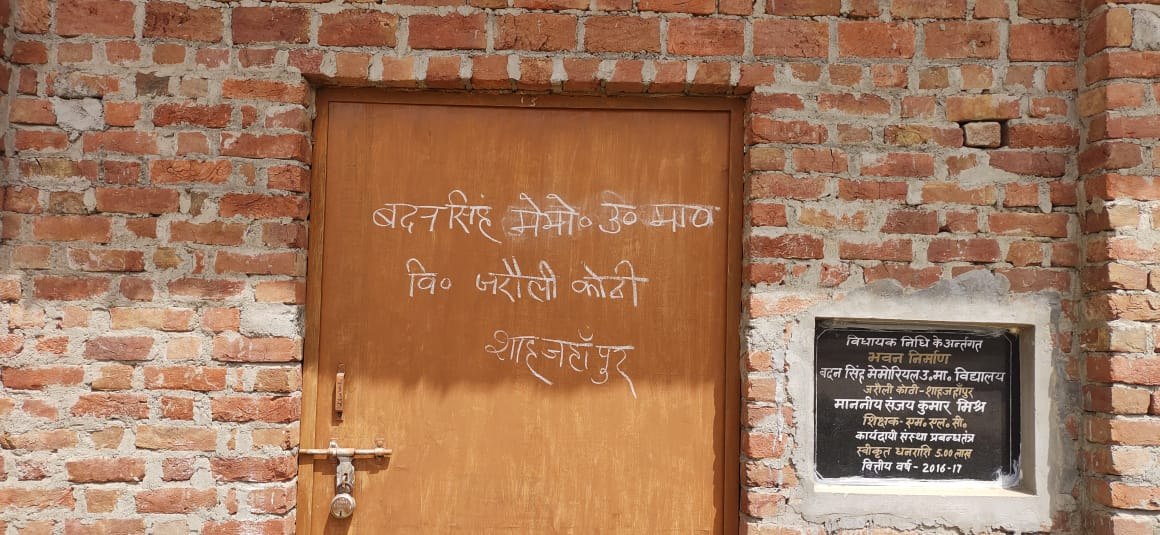 बदन सिंह मेमो० उ० मा०
वि० जरौली कोठी
शाहजहाँपुर
विधायक निधि के अर्न्तगत
भवन निर्माण
बदन सिंह मेमोरियल उ.मा. विद्यालय
जरौली कोठी-शाहजहाँपुर
माननीय संजय कुमार मिश्र
शिक्षक-एम.एल.सी.
कार्यदायी संस्था प्रबन्धतंत्र
स्वीकृत धनराशि 5.00 लाख
वित्तीय वर्ष-2016-17